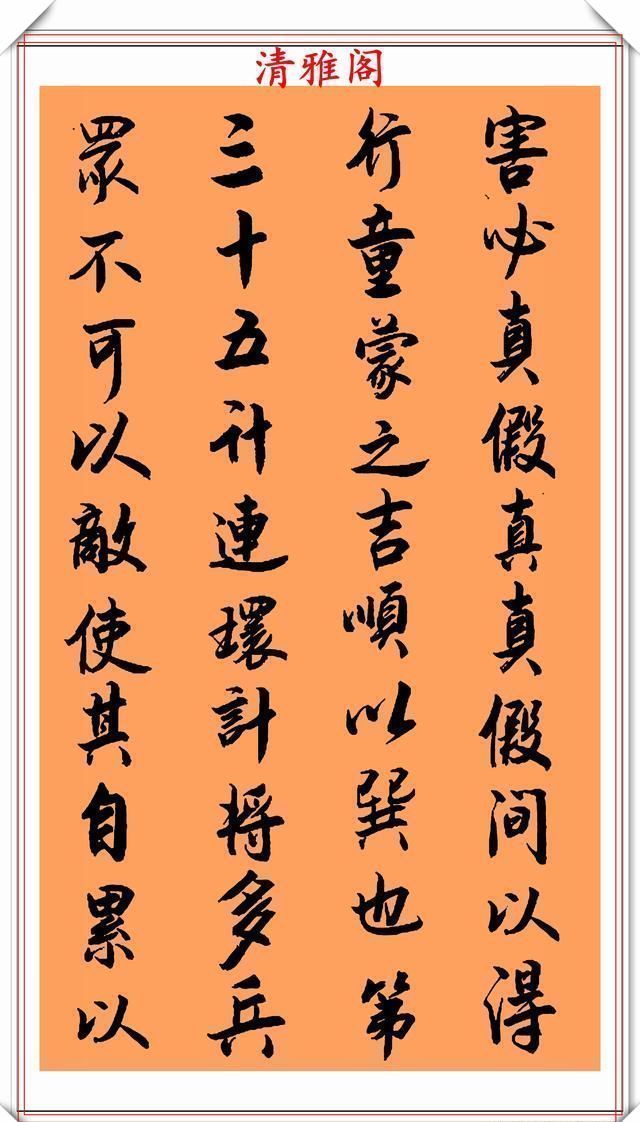 清雅阁
害必真假真真假间以得
行童蒙之吉順以巽也第
三十五计連環計将多兵
眾不可以敵使其自累以